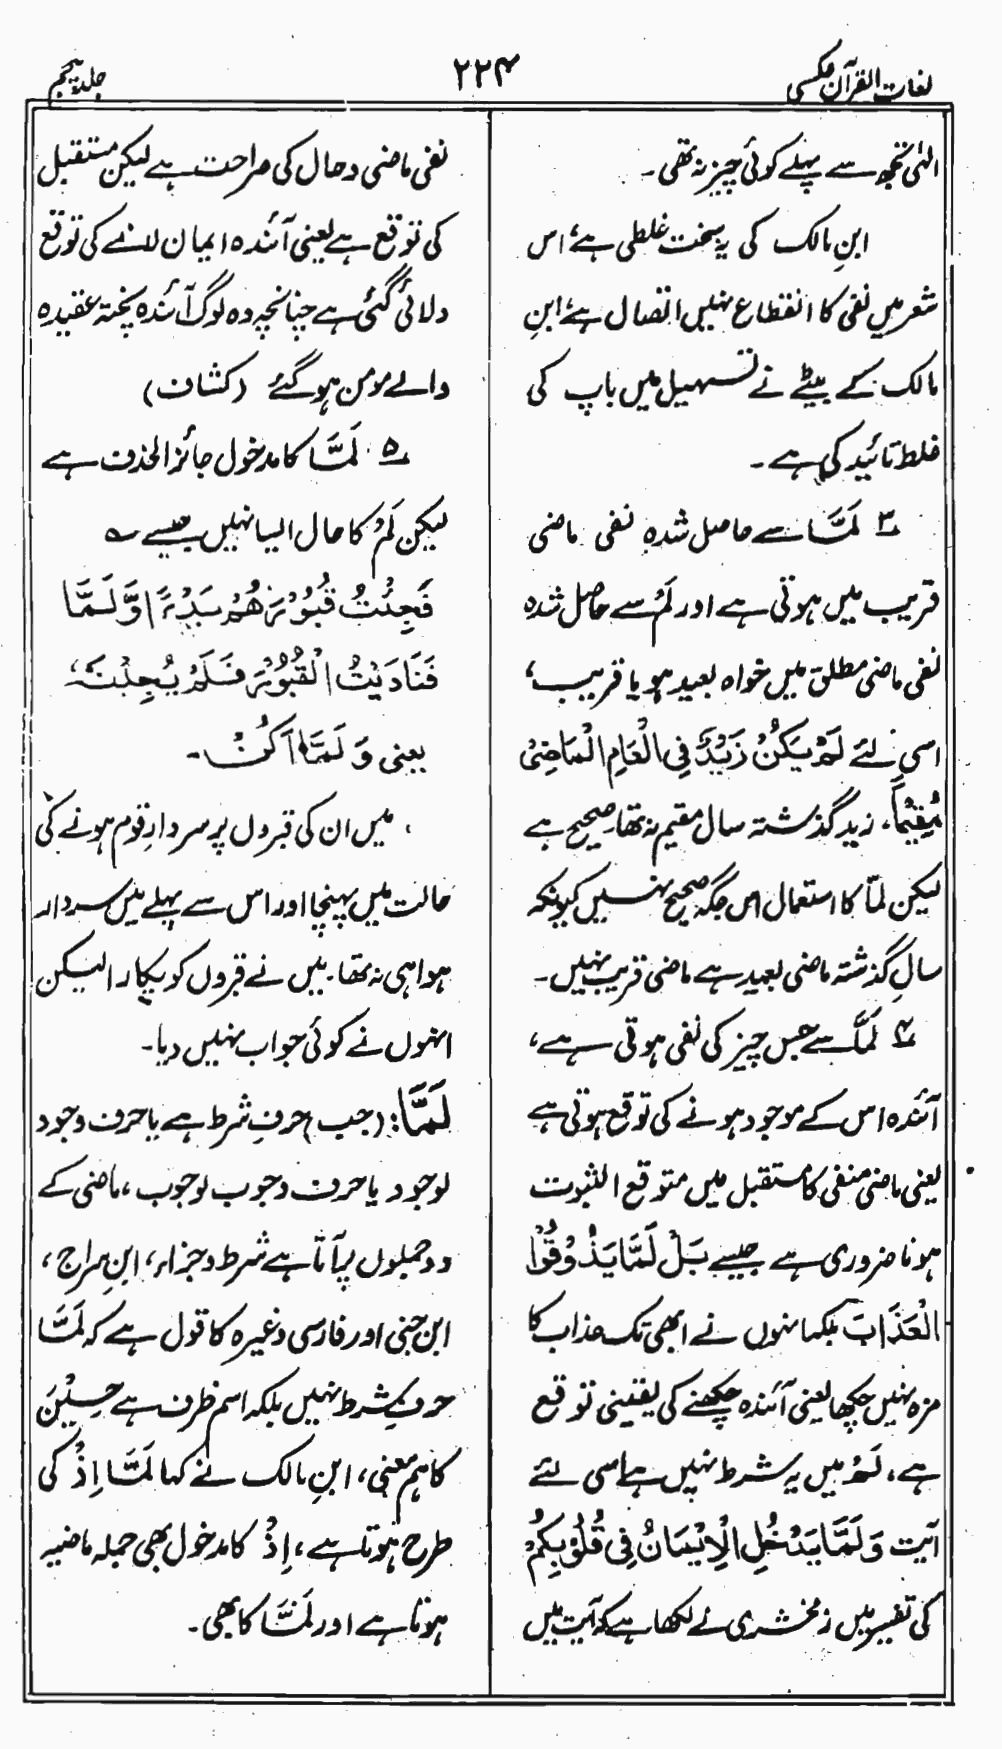 لغات القرآن عکسی
۲۲۴
جلد پنجم
الٰہی تجھ سے پہلے کوئی چیز نہ تھی۔
ابنِ مالک کی یہ سخت غلطی ہے، اس
شعر میں نفی کا انقطاع نہیں اتصال ہے، ابنِ
مالک کے بیٹے نے تسہیل میں باپ کی
غلط تائید کی ہے۔
۳ لَمَّا سے حاصل شدہ نفی ماضی
قریب میں ہوتی ہے اور لَمْ سے حاصل شدہ
نفی ماضی مطلق میں خواہ بعید ہو یا قریب،
اسی لئے لَمْ یَکُنْ زَیْدٌ فِی الْعَامِ الْمَاضِیْ
مُقِیْمًا، زید گذشتہ سال مقیم نہ تھا، صحیح ہے
لیکن لمّا کا استعمال اس جگہ صحیح نہیں کیونکہ
سالِ گذشتہ ماضی بعید ہے ماضی قریب نہیں۔
۴ لَمَّا سے جس چیز کی نفی ہوتی ہے،
آئندہ اس کے موجود ہونے کی توقع ہوتی ہے
یعنی ماضی منفی کا مستقبل میں متوقع الثبوت
ہونا ضروری ہے جیسے بَلْ لَمَّا یَذُوْقُوْا
الْعَذَابَ بلکہ انہوں نے ابھی تک عذاب کا
مزہ نہیں چکھا یعنی آئندہ چکھنے کی یقینی توقع
ہے، لَمْ میں یہ شرط نہیں ہے اسی لئے
آیت وَلَمَّا یَدْخُلِ الْاِیْمَانُ فِی قُلُوْبِکُمْ
کی تفسیر میں زمخشری نے لکھا ہے کہ آیت میں
نفی ماضی و حال کی صراحت ہے لیکن مستقبل
کی توقع ہے یعنی آئندہ ایمان لانے کی توقع
دلائی گئی ہے چنانچہ وہ لوگ آئندہ پختہ عقیدہ
والے مومن ہو گئے (کشاف)
۵ لَمَّا کا مدخول جائز الحذف ہے
لیکن لَمْ کا حال ایسا نہیں جیسے ؎
فَجِئْتُ قُبُوْرَھُمْ بَدْءً ا وَّلَمَّا
فَنَادَیْتُ الْقُبُوْرَ فَلَمْ یُجِبْنَہْ،
یعنی وَلَمَّا اَکُنْ۔
میں ان کی قبروں پر سردارِ قوم ہونے کی
حالت میں پہنچا اور اس سے پہلے میں سردار
ہوا ہی نہ تھا۔ میں نے قبروں کو پکارا لیکن
انہوں نے کوئی جواب نہیں دیا۔
لَمَّا: (جب) حرفِ شرط ہے یا حرف وجود
لوجود یا حرف وجوب لوجوب، ماضی کے
دو جملوں پر آتا ہے شرط و جزاء، ابنِ سراج،
ابن جنی اور فارسی وغیرہ کا قول ہے کہ لَمَّا
حرفِ شرط نہیں بلکہ اسم ظرف ہے حِیْنَ
کا ہم معنی، ابنِ مالک نے کہا لَمَّا اِذْ کی
طرح ہوتا ہے، اِذْ کا مدخول بھی جملہ ماضیہ
ہوتا ہے اور لَمَّا کا بھی۔